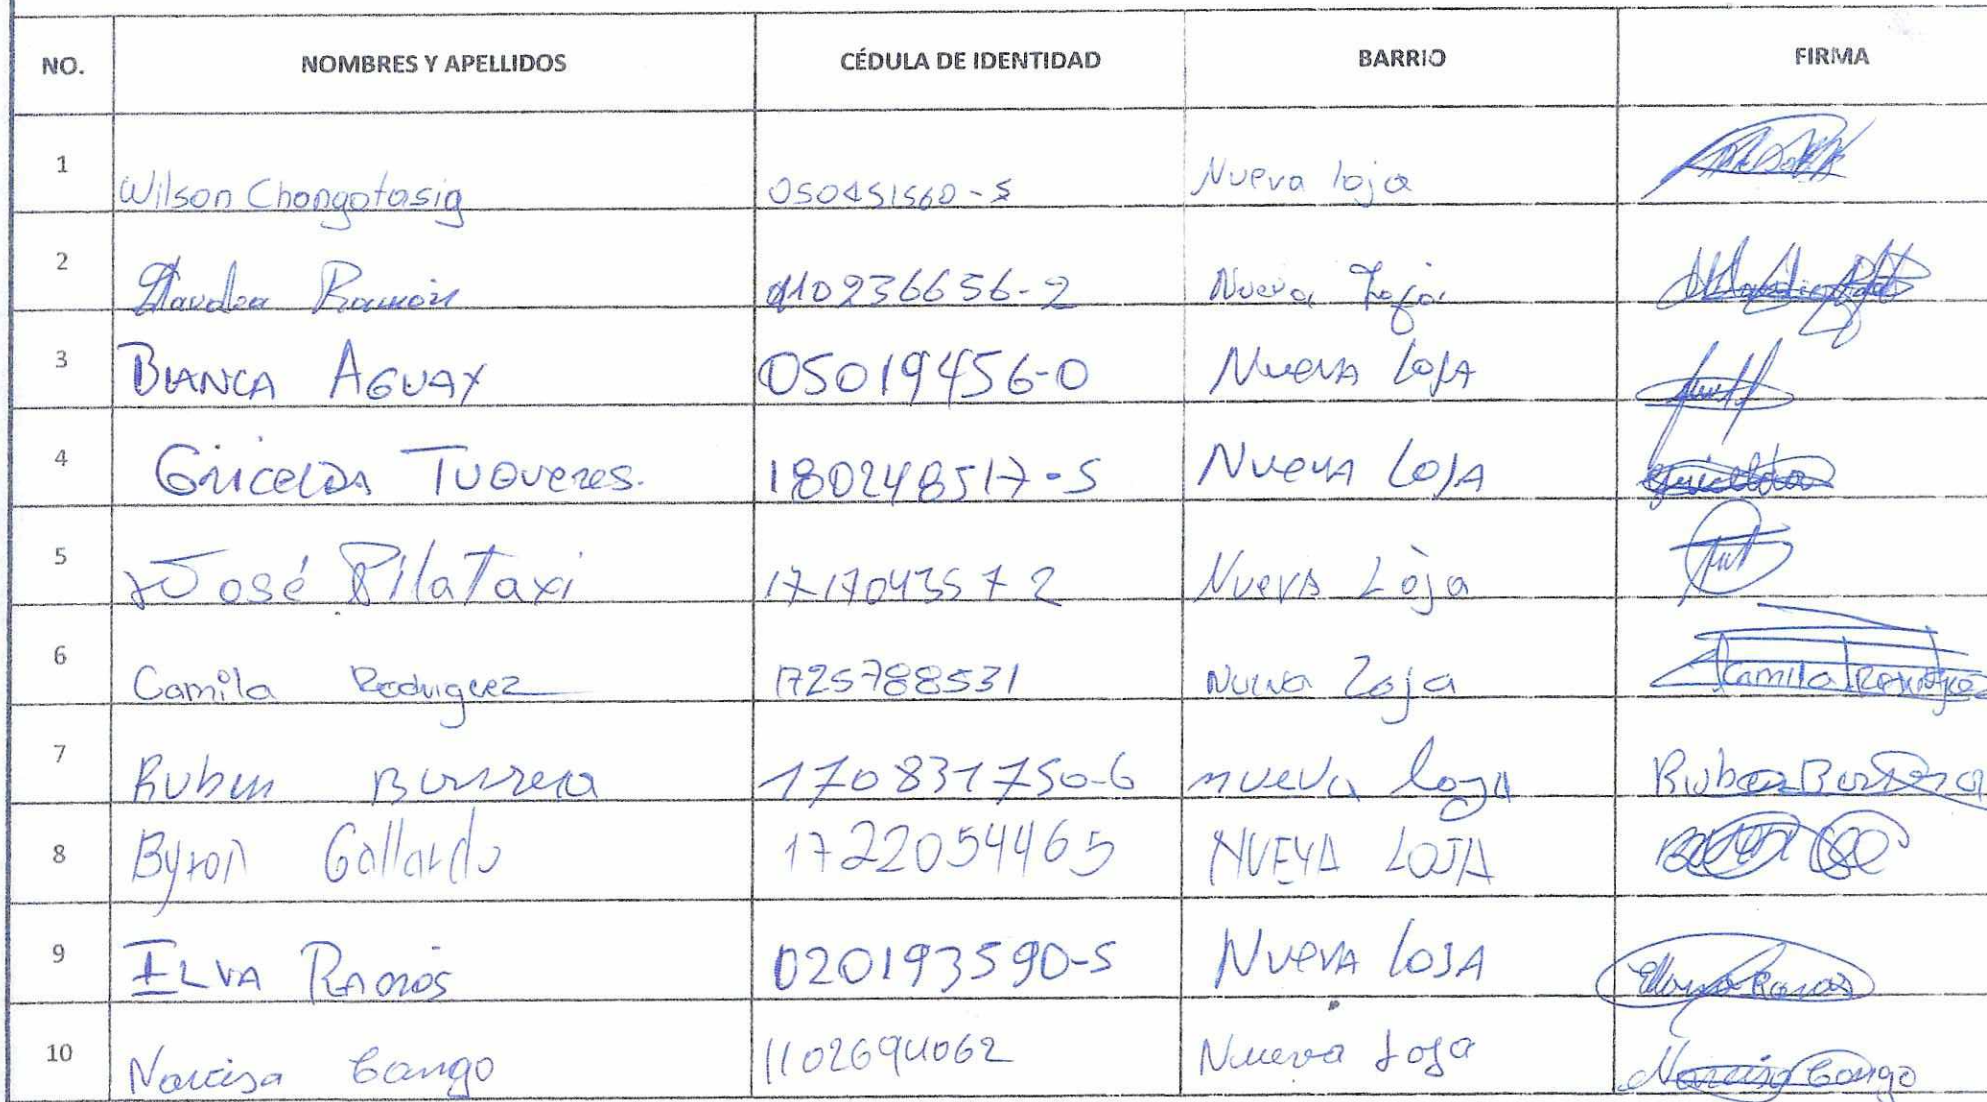 NO. NOMBRES Y APELLIDOS CÉDULA DE IDENTIDAD BARRIO FIRMA
1 Wilson Chongotasig 050451560-5 Nueva loja
2 Ramón 110236656-2 Nueva Loja
3 BLANCA AGUAY 05019456-0 Nueva LOJA
4 GRICELDA 180248517-5 NUEVA LOJA
5 José PilaTaxi 1717043572 Nueva Lòja
6 Camila Rodriguez 1725788531 Nueva Loja Camila Rodriguez
7 Ruben Burrera 170831750-6 nueva loja Ruben
8 Byron Gallardo 1722054465 NUEVA LOJA
9 ILVA RAMOS 020193590-5 NUEVA LOJA Ramos
10 Narcisa Congo 1102694062 Nueva Loja Narcisa Congo